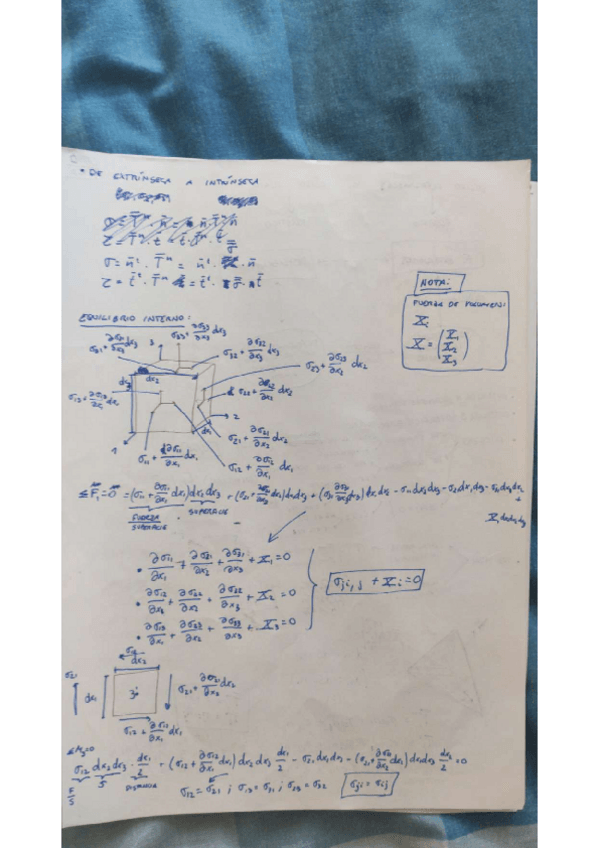 • DE EXTRÍNSECA A INTRÍNSECA
σ = n̄ᵗ · T̄ⁿ = n̄ᵗ · n̄
τ = t̄ᵗ · T̄ⁿ = t̄ᵗ · σ̿ · t̄
NOTA:
FUERZA DE VOLUMEN:
X̄ᵢ
X̄ = (X̄₁ X̄₂ X̄₃)
EQUILIBRIO INTERNO:
σ₃₁ + ∂σ₃₁/∂x₃ dx₃
3
σ₃₃ + ∂σ₃₃/∂x₃ dx₃
σ₃₂ + ∂σ₃₂/∂x₃ dx₃
σ₂₃ + ∂σ₂₃/∂x₂ dx₂
dx₃
dx₂
σ₁₃ + ∂σ₁₃/∂x₁ dx₁
σ₂₂ + ∂σ₂₂/∂x₂ dx₂
2
dx₁
σ₂₁ + ∂σ₂₁/∂x₂ dx₂
1
σ₁₁ + ∂σ₁₁/∂x₁ dx₁
σ₁₂ + ∂σ₁₂/∂x₁ dx₁
ΣF̄₁ = 0̄ = (σ₁₁ + ∂σ₁₁/∂x₁ dx₁) dx₂ dx₃ + (σ₂₁ + dx₂) dx₁ dx₃ + (σ₃₁ ∂σ₃₁/∂x₃ dx₃) dx₁ dx₂ - σ₁₁ dx₂ dx₃ - σ₂₁ dx₁ dx₃ - σ₃₁ dx₁ dx₂ +
FUERZA/SUPERFICIE SUPERFICIE X̄₁ dx₁ dx₂ dx₃
• ∂σ₁₁/∂x₁ + ∂σ₂₁/∂x₂ + ∂σ₃₁/∂x₃ + X̄₁ = 0
• ∂σ₁₂/∂x₁ + ∂σ₂₂/∂x₂ + ∂σ₃₂/∂x₃ + X̄₂ = 0
• ∂σ₁₃/∂x₁ + ∂σ₂₃/∂x₂ + ∂σ₃₃/∂x₃ + X̄₃ = 0
σⱼᵢ,ⱼ + X̄ᵢ = 0
σ₁₂
dx₂
σ₂₁
dx₁
3
σ₂₁ + ∂σ₂₁/∂x₂ dx₂
σ₁₂ + ∂σ₁₂/∂x₁ dx₁
ΣM₃=0
σ₁₂ dx₂ dx₃ · dx₁/2 + (σ₁₂ + ∂σ₁₂/∂x₁ dx₁) dx₂ dx₃ dx₁/2 - σ₂₁ dx₁ dx₃ - (σ₂₁ + ∂σ₂₁/∂x₂ dx₂) dx₁ dx₃ dx₂/2 = 0
F/S S DISTANCIA
σ₁₂ = σ₂₁ ; σ₁₃ = σ₃₁ ; σ₂₃ = σ₃₂
σⱼᵢ = σᵢⱼ